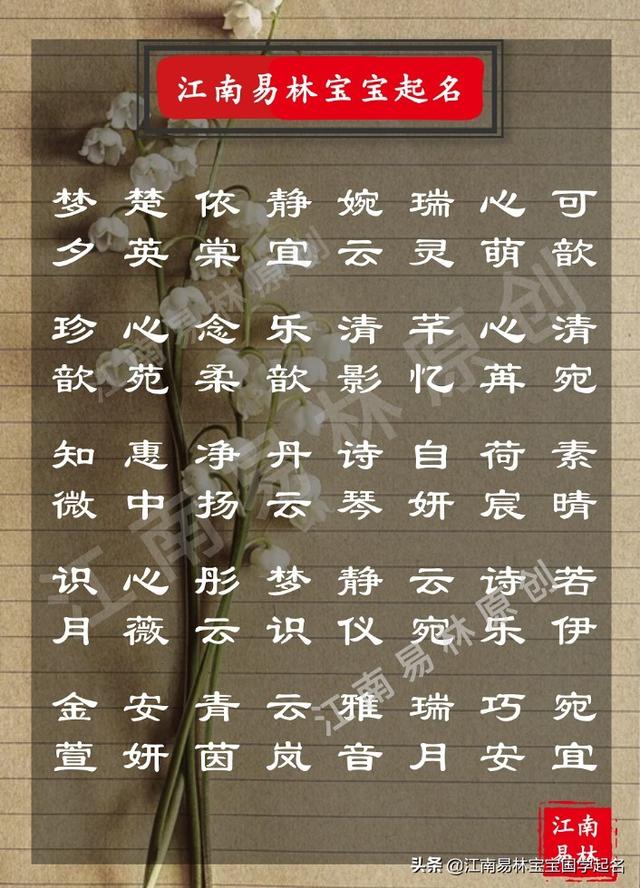 江南易林宝宝起名
梦 楚 依 静 婉 瑞 心 可
夕 英 棠 宜 云 灵 萌 歆
珍 心 念 乐 清 芊 心 清
歆 苑 柔 歆 影 忆 苒 宛
知 惠 净 丹 诗 自 荷 素
微 中 扬 云 琴 妍 宸 晴
识 心 彤 梦 静 云 诗 若
月 薇 云 识 仪 宛 乐 伊
金 安 青 云 雅 瑞 巧 宛
萱 妍 茵 岚 音 月 安 宜
江南易林原创
江南易林原创
江南易林原创
江南
易林
头条 @江南易林宝宝国学起名